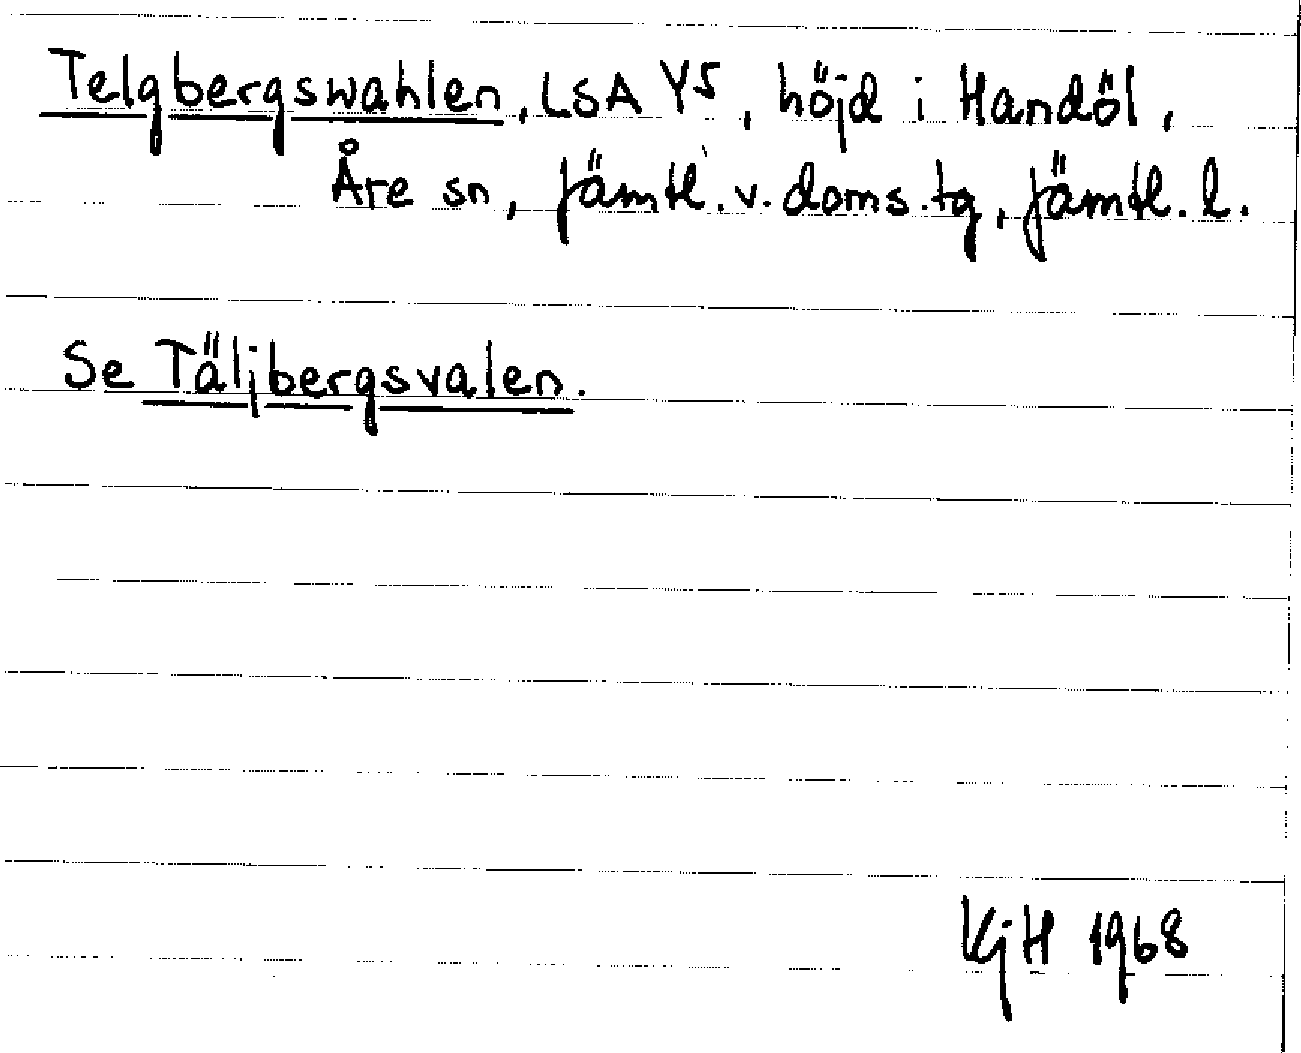 Telgbergswahlen, LSA Y5, höjd i Handöl,
Åre sn, Jämtl. v. doms. tg, Jämtl. l.
Se Täljbergsvalen.
KjH 1968